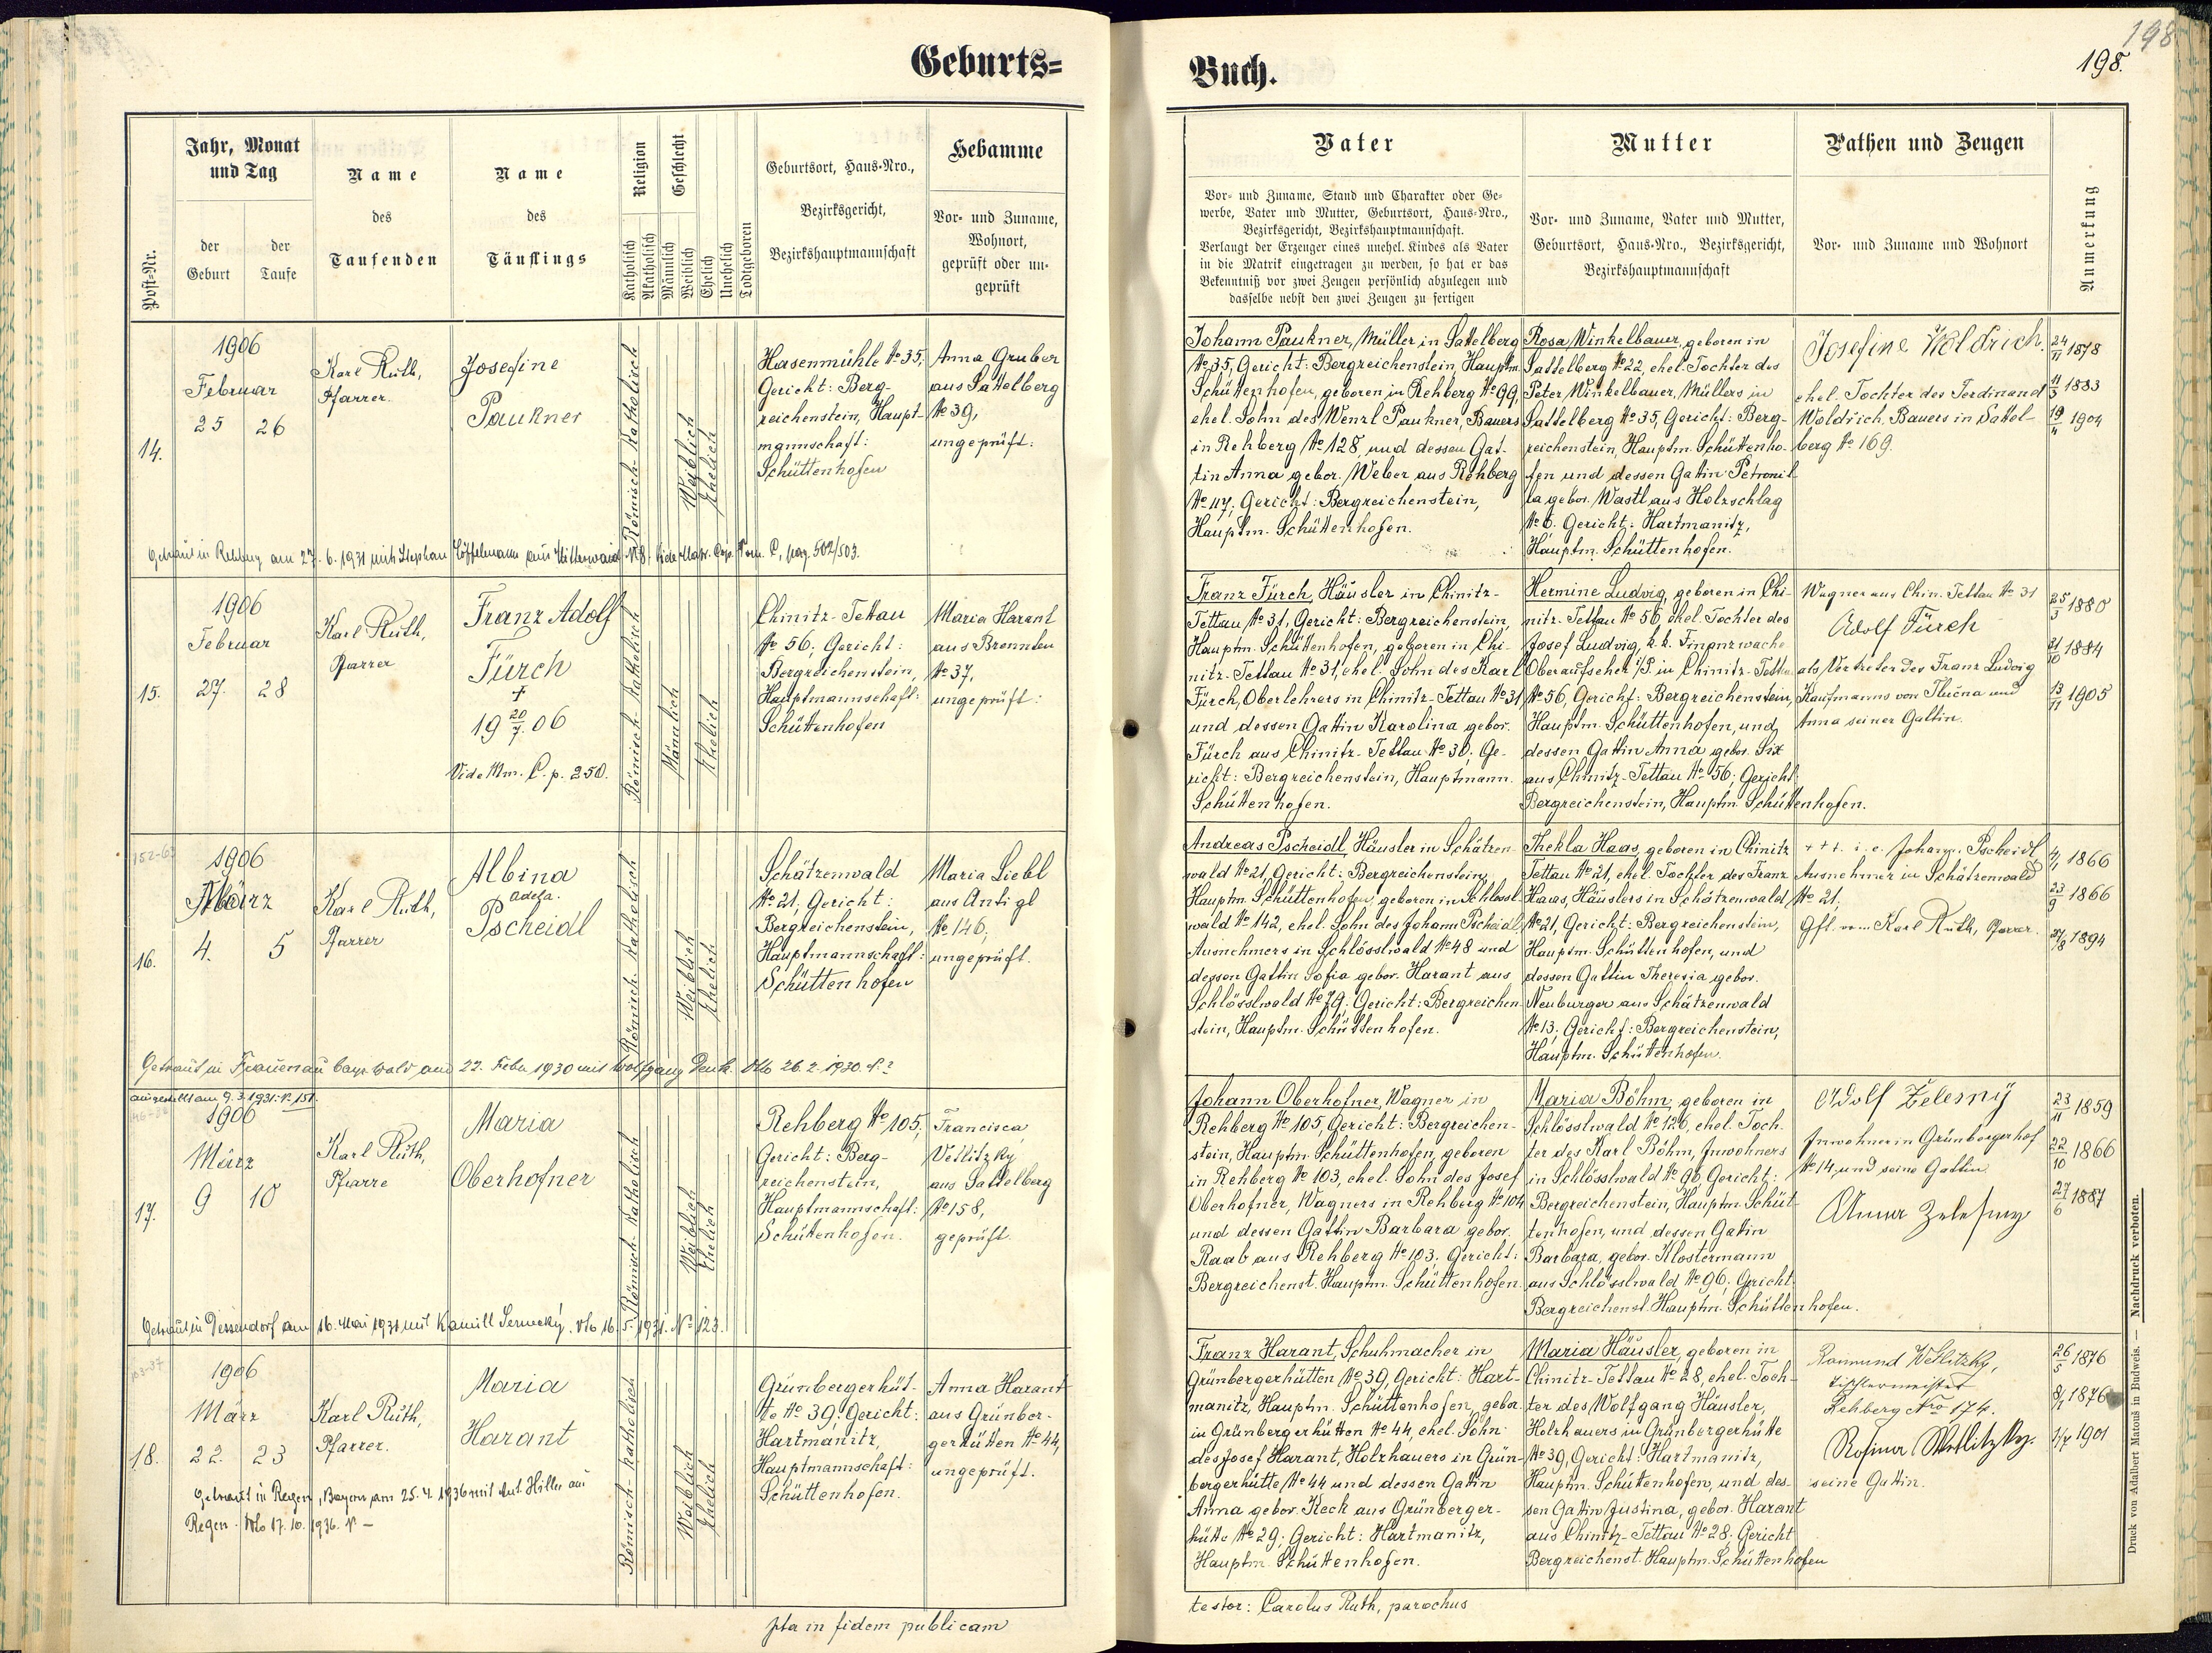 Geburts=
Jahr, Monat
und Tag
der
Geburt
der
Taufe
Post-Nr.
Name
des
Taufenden
Name
des
Täuflings
Religion
Katholisch
Akatholisch
Geschlecht
Männlich
Weiblich
Ehelich
Unehelich
Todtgeboren
Geburtsort, Haus-Nro.,
Bezirksgericht,
Bezirkshauptmannschaft
Hebamme
Vor- und Zuname,
Wohnort,
geprüft oder un-
geprüft
14.
1906
Februar
25 26
Karl Ruth,
Pfarrer.
Josefine
Paukner
Römisch-Katholisch
Weiblich
Ehelich
Hasenmühle No 35;
Gericht: Berg-
reichenstein, Haupt-
mannschaft:
Schüttenhofen
Anna Gruber
aus Sattelberg
No 39,
ungeprüft.
Getraut in Rehberg am 27. 6. 1931 mit Stephan Löffelmann aus Mitterwaid
pag. 502/503.
15.
1906
Februar
27. 28
Karl Ruth,
Pfarrer
Franz Adolf
Fürch
+
19 20/7. 06
Vide Mm. C. p. 250.
Römisch-Katholisch
Männlich
Ehelich
Chinitz-Tettau
No 56; Gericht:
Bergreichenstein,
Hauptmannschaft:
Schüttenhofen
Maria Harant
aus Brennten
No 37,
ungeprüft:
152-63
16.
1906
März
4. 5
Karl Ruth,
Pfarrer
Albina
Pscheidl
Römisch-Katholisch
Weiblich
Ehelich
Schätzenwald
No 21; Gericht:
Bergreichenstein,
Hauptmannschaft:
Schüttenhofen
Maria Liebl
aus Antigl
No 146;
ungeprüft.
Getraut in Frauenau bayr. Wald am 22. Febr 1930 mit Wolfgang Denk. Vto 26. 2. 1930.
ausgestellt am 9. 3. 1931: No 151.
17.
1906
März
9 10
Karl Ruth,
Pfarre
Maria
Oberhofner
Römisch-Katholisch
Weiblich
Ehelich
Rehberg No 105,
Gericht: Berg-
reichenstein,
Hauptmannschaft:
Schüttenhofen.
Francisca
Vetlitzky
aus Sattelberg
No 158,
geprüft.
Getraut in Dessendorf am 16. Mai 1931 mit Kamill
Vto 16. 5. 1931. No 123.
103-37
18.
1906
März
22. 23
Karl Ruth,
Pfarrer.
Maria
Harant
Römisch-Katholisch
Weiblich
Ehelich
Grünbergerhüt-
te No 39; Gericht:
Hartmanitz,
Hauptmannschaft:
Schüttenhofen.
Anna Harant
aus Grünber-
gerhütten No 44,
ungeprüft.
Getraut in Regen, Bayern am 25. 4. 1936 mit Ant. Hiller aus
Regen. Vto 17. 10. 1936. No —
pta in fidem publicam
Buch.
198
198.
Vater
Vor- und Zuname, Stand und Charakter oder Ge-
werbe, Vater und Mutter, Geburtsort, Haus-Nro.,
Bezirksgericht, Bezirkshauptmannschaft.
Verlangt der Erzeuger eines unehel. Kindes als Vater
in die Matrik eingetragen zu werden, so hat er das
Bekenntniß vor zwei Zeugen persönlich abzulegen und
dasselbe nebst den zwei Zeugen zu fertigen
Mutter
Vor- und Zuname, Vater und Mutter,
Geburtsort, Haus-Nro., Bezirksgericht,
Bezirkshauptmannschaft
Pathen und Zeugen
Vor- und Zuname und Wohnort
Anmerkung
Johann Paukner, Müller in Sattelberg
No 35, Gericht: Bergreichenstein, Hauptm.
Schüttenhofen, geboren in Rehberg No 99,
ehel. Sohn des Wenzl Paukner, Bauers
in Rehberg No 128, und dessen Gat-
tin Anna gebor. Weber aus Rehberg
No 117; Gericht: Bergreichenstein,
Hauptm. Schüttenhofen.
Rosa Winkelbauer, geboren in
Sattelberg No 22, ehel. Tochter des
Peter Winkelbauer, Müllers in
Sattelberg No 35, Gericht: Berg-
reichenstein, Hauptm. Schüttenho-
fen und dessen Gatin Petronil-
la gebor. Wastl aus Holzschlag
No 6. Gericht: Hartmanitz,
Hauptm. Schüttenhofen.
Josefine Woldrich.
ehel. Tochter des Ferdinand
Woldrich, Bauers in Sattel-
berg No 169.
24/11 1878
11/3 1883
19/4 1904
Franz Fürch, Häusler in Chinitz-
Tettau No 31, Gericht: Bergreichenstein,
Hauptm. Schüttenhofen, geboren in Chi-
nitz-Tettau No 31, ehel. Sohn des Karl
Fürch, Oberlehrers in Chinitz-Tettau No 31
und dessen Gattin Karolina gebor.
Fürch aus Chinitz-Tettau No 30; Ge-
richt: Bergreichenstein, Hauptmann.
Schüttenhofen.
Hermine Ludvig, geboren in Chi-
nitz-Tettau No 56, ehel. Tochter des
Josef Ludvig, k. k. Finanzwache
Oberaufseher i/P. in Chinitz-Tettau
No 56, Gericht: Bergreichenstein,
Hauptm. Schüttenhofen, und
dessen Gattin Anna gebor. Six
aus Chinitz-Tettau No 56; Gericht:
Bergreichenstein, Hauptm. Schüttenhofen.
Wagner aus Chin. Tettau No 31
Adolf Fürch
als Vertreter des Franz Ludvig
Kaufmanns von Tlučna und
Anna seiner Gattin.
25/3 1880
21/10 1884
13/11 1905
Andreas Pscheidl, Häusler in Schätzen-
wald No 21, Gericht: Bergreichenstein,
Hauptm. Schüttenhofen, geboren in Schlössl-
wald No 142, ehel. Sohn des Johann Pscheidl
Ausnehmers in Schlösslwald No 48 und
dessen Gattin Sofia gebor. Harant aus
Schlösslwald No 79; Gericht: Bergreichen-
stein, Hauptm. Schüttenhofen.
Thekla Haas, geboren in Chinitz
Tettau No 21, ehel. Tochter des Franz
Haas, Häuslers in Schätzenwald
No 21, Gericht: Bergreichenstein,
Hauptm. Schüttenhofen, und
dessen Gattin Theresia gebor.
Neuburger aus Schätzenwald
No 13; Gericht: Bergreichenstein,
Hauptm. Schüttenhofen.
+++ i. e. Johann Pscheidl,
Ausnehmer in Schätzenwald
No 21,
Gft. vom Karl Ruth, Pfarrer.
1866
23/9 1866
27/8 1894
Johann Oberhofner, Wagner in
Rehberg No 105, Gericht: Bergreichen-
stein, Hauptm. Schüttenhofen, geboren
in Rehberg No 103, ehel. Sohn des Josef
Oberhofner, Wagners in Rehberg No 104
und dessen Gattin Barbara gebor.
Raab aus Rehberg No 103; Gericht:
Bergreichenst. Hauptm. Schüttenhofen.
Maria Böhm, geboren in
Schlösslwald No 126, ehel. Toch-
ter des Karl Böhm, Inwohners
in Schlösslwald No 90, Gericht:
Bergreichenstein, Hauptm. Schüt-
tenhofen, und dessen Gatin
Barbara, gebor. Klostermann
aus Schlösslwald No 96; Gericht:
Bergreichenst. Hauptm. Schüttenhofen.
Adolf Želesný
Inwohner in Grünbergerhof
No 14, und seine Gattin
Anna Zelesny
23/11 1859
22/10 1866
27/6 1887
Franz Harant, Schuhmacher in
Grünbergerhütten No 39, Gericht: Hart-
manitz, Hauptm. Schüttenhofen, gebor.
in Grünbergerhütten No 44, ehel. Sohn
des Josef Harant, Holzhauers in Grün-
bergerhütte No 44 und dessen Gatin
Anna gebor. Keck aus Grünberger-
hütte No 29; Gericht: Hartmanitz,
Hauptm. Schüttenhofen.
Maria Häusler, geboren in
Chinitz-Tettau No 28, ehel. Toch-
ter des Wolfgang Häusler,
Holzhauers in Grünbergerhütte
No 39, Gericht: Hartmanitz,
Hauptm. Schüttenhofen, und des-
sen Gattin Justina, gebor. Harant
aus Chinitz-Tettau No 28; Gericht
Bergreichenst. Hauptm. Schüttenhofen
Raimund Wetlitzky,
Tischlermeister
Rehberg Nro 174.
Rosina Wetlitzky.
seine Gattin.
26/5 1876
8/1 1876
1901
testor: Carolus Ruth, parochus
Druck von Adalbert Matouš in Budweis. — Nachdruck verboten.